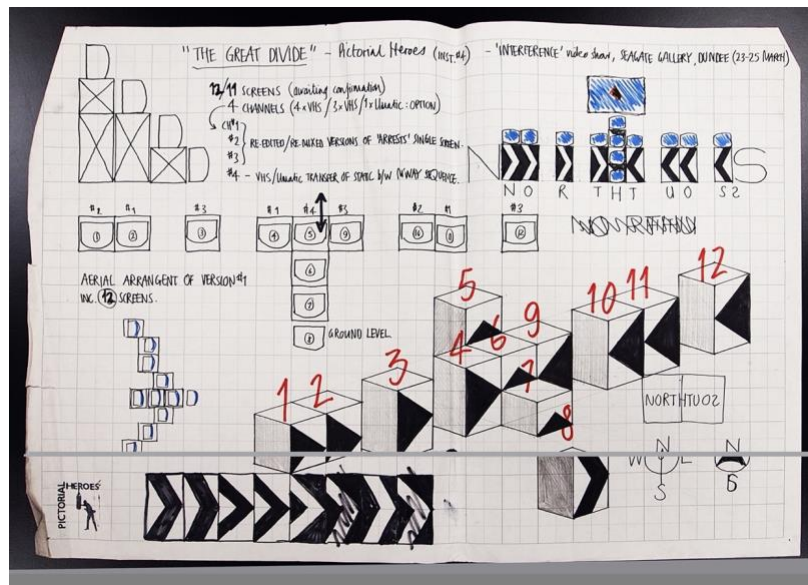 "THE GREAT DIVIDE" - Pictorial Heroes (INST.#4) - 'INTERFERENCE' video show, SEAGATE GALLERY, DUNDEE (23-25 MARCH)
12/11 SCREENS (awaiting confirmation)
4 CHANNELS (4 x VHS / 3 x VHS / 1 x Umatic : OPTION)
CH#1
#2 RE-EDITED/RE-MIXED VERSIONS OF 'ARRESTS' SINGLE SCREEN.
#3
#4 - VHS/Umatic TRANSFER OF STATIC b/w SEQUENCE.
N S
N O R T H T U O S
#2 #1 #3 #1 #4 #3 #2 #1 #3
1 2 3 4 5 9 10 11 12
6
7
8 GROUND LEVEL.
AERIAL ARRANGENT OF VERSION#1
INC. 12 SCREENS.
1 2 3 4 5 6 7 8 9 10 11 12
NORTHTUOS
N
W E
S
N
PICTORIAL HEROES